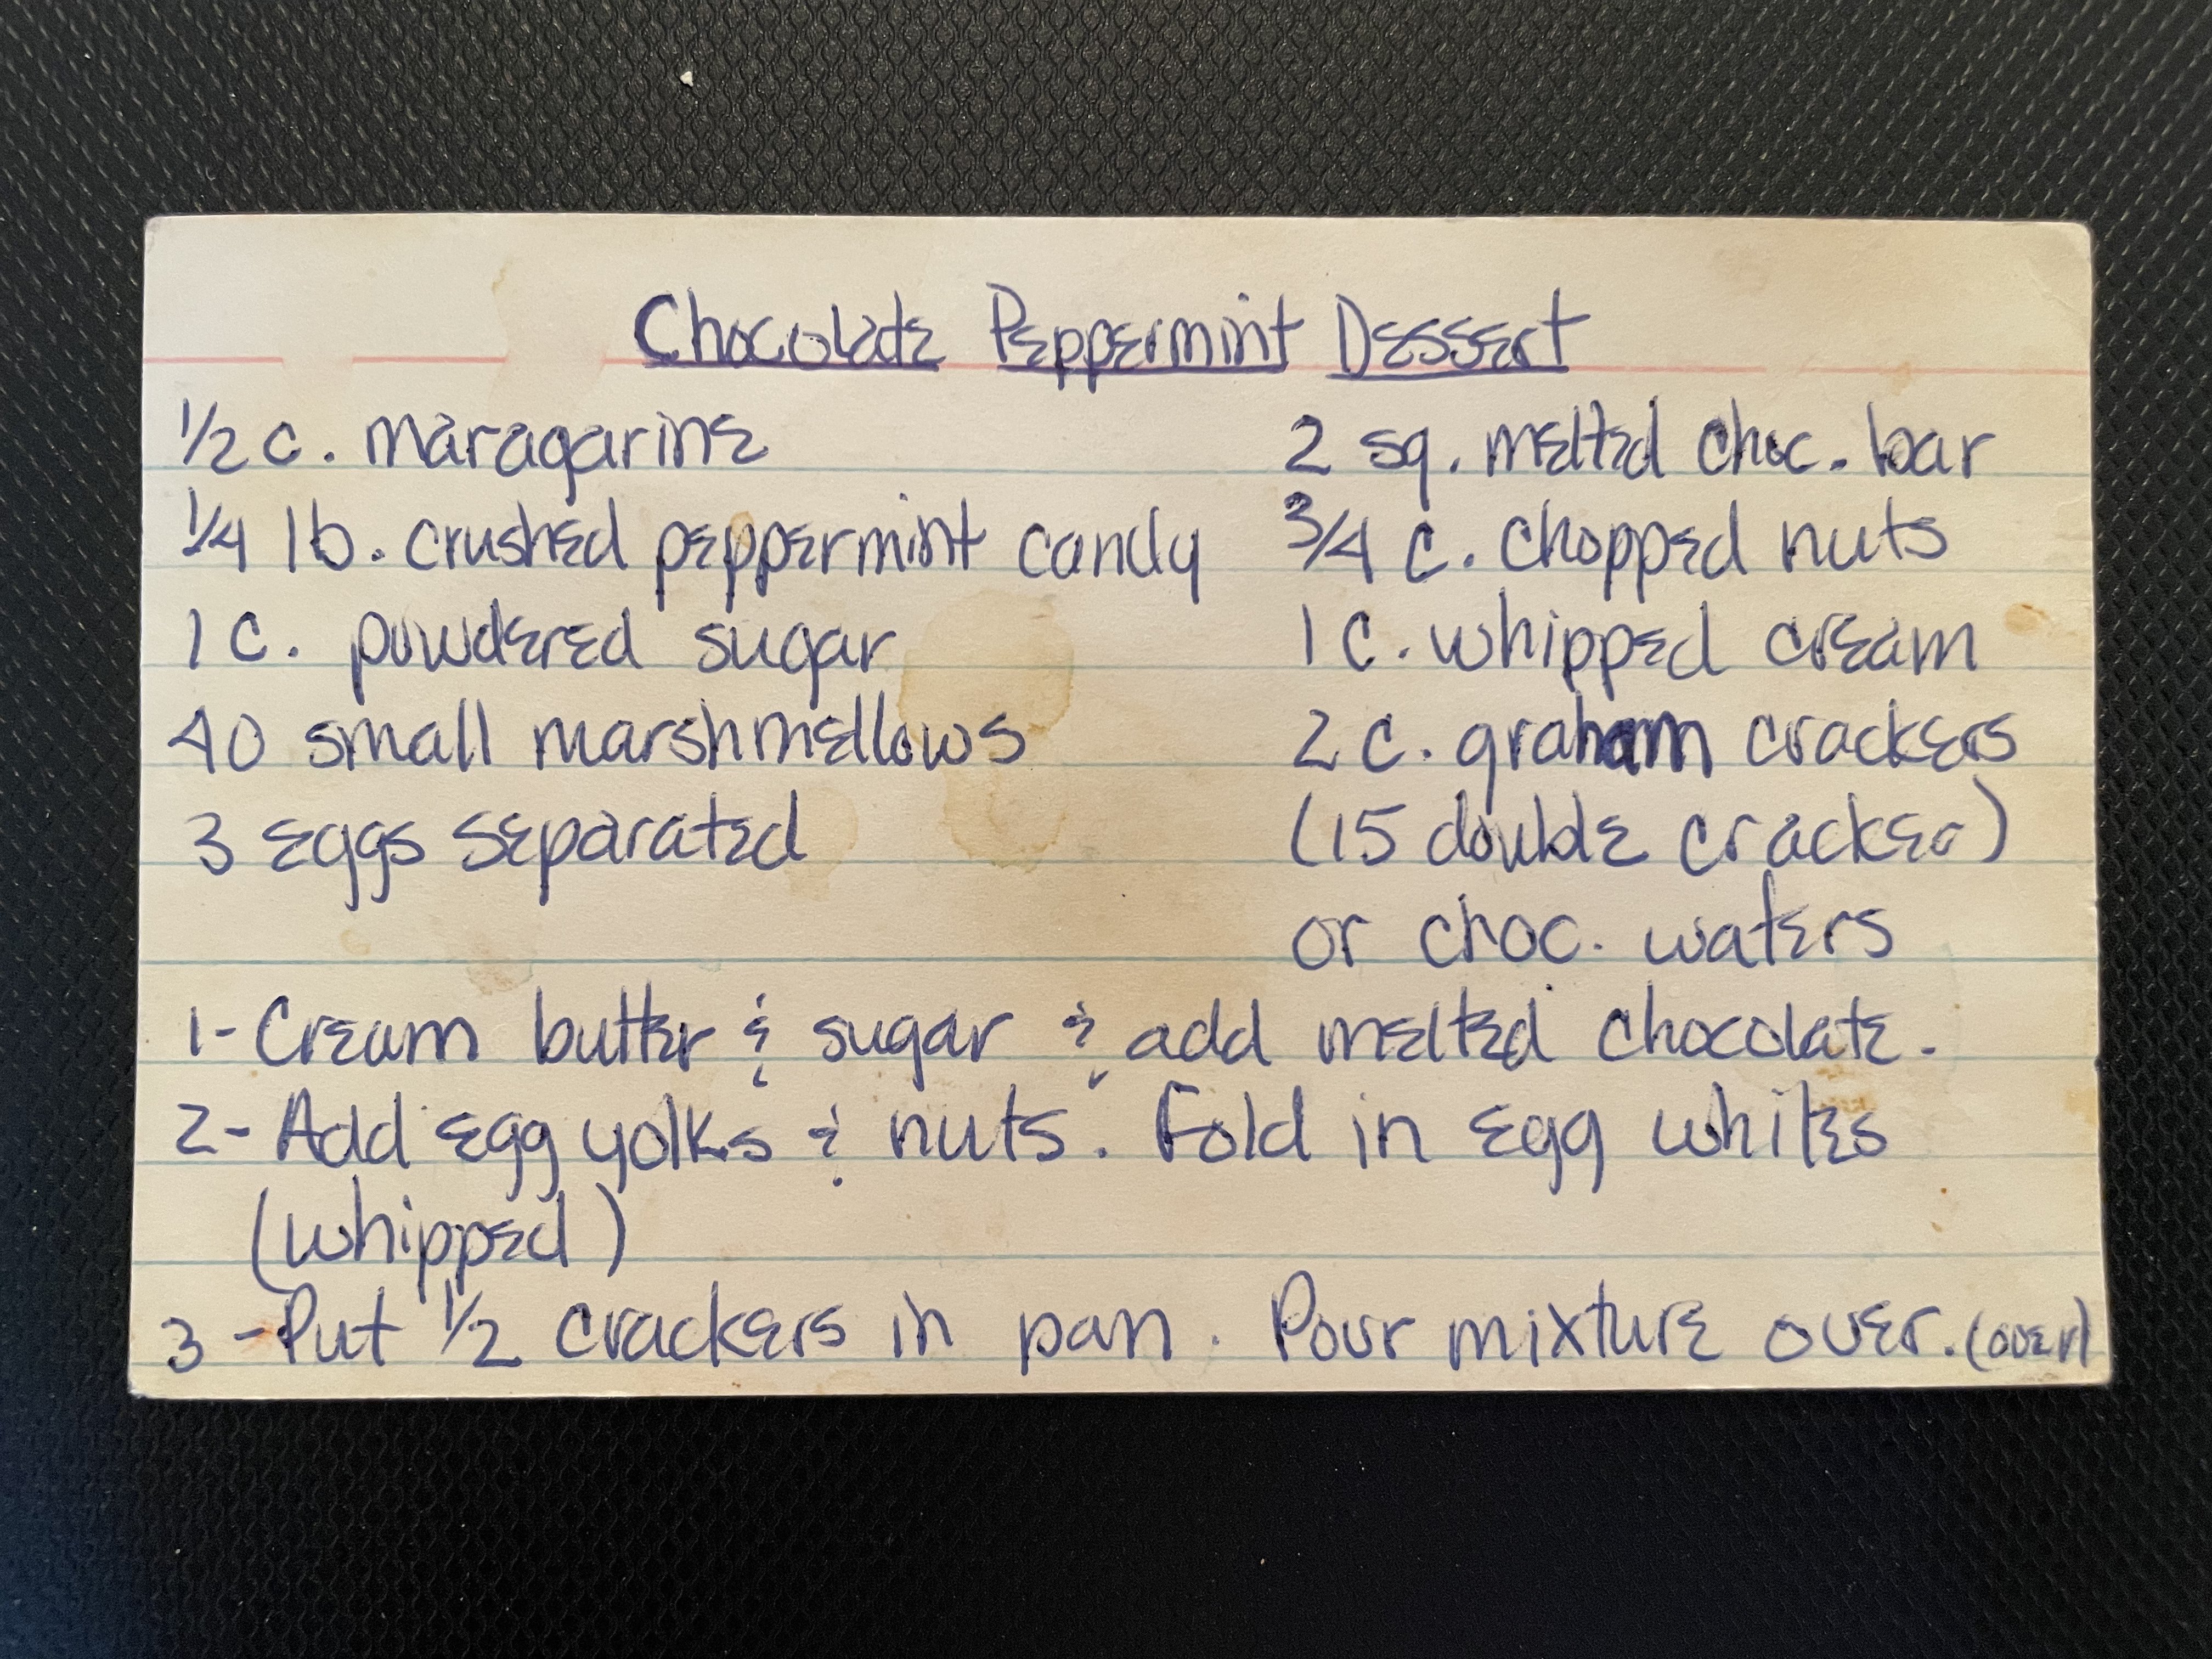 Chocolate Peppermint Dessert
1/2 c. maragarine
1/4 lb. crushed peppermint candy
1 c. powdered sugar
40 small marshmellows
3 eggs separated
2 sq. melted choc. bar
3/4 c. chopped nuts
1 c. whipped cream
2 c. graham crackers
(15 double cracker)
or choc. waters
1- Cream butter & sugar & add melted chocolate.
2- Add egg yolks & nuts. Fold in egg whites
(whipped)
3 - Put 1/2 crackers in pan. Pour mixture over. (over)